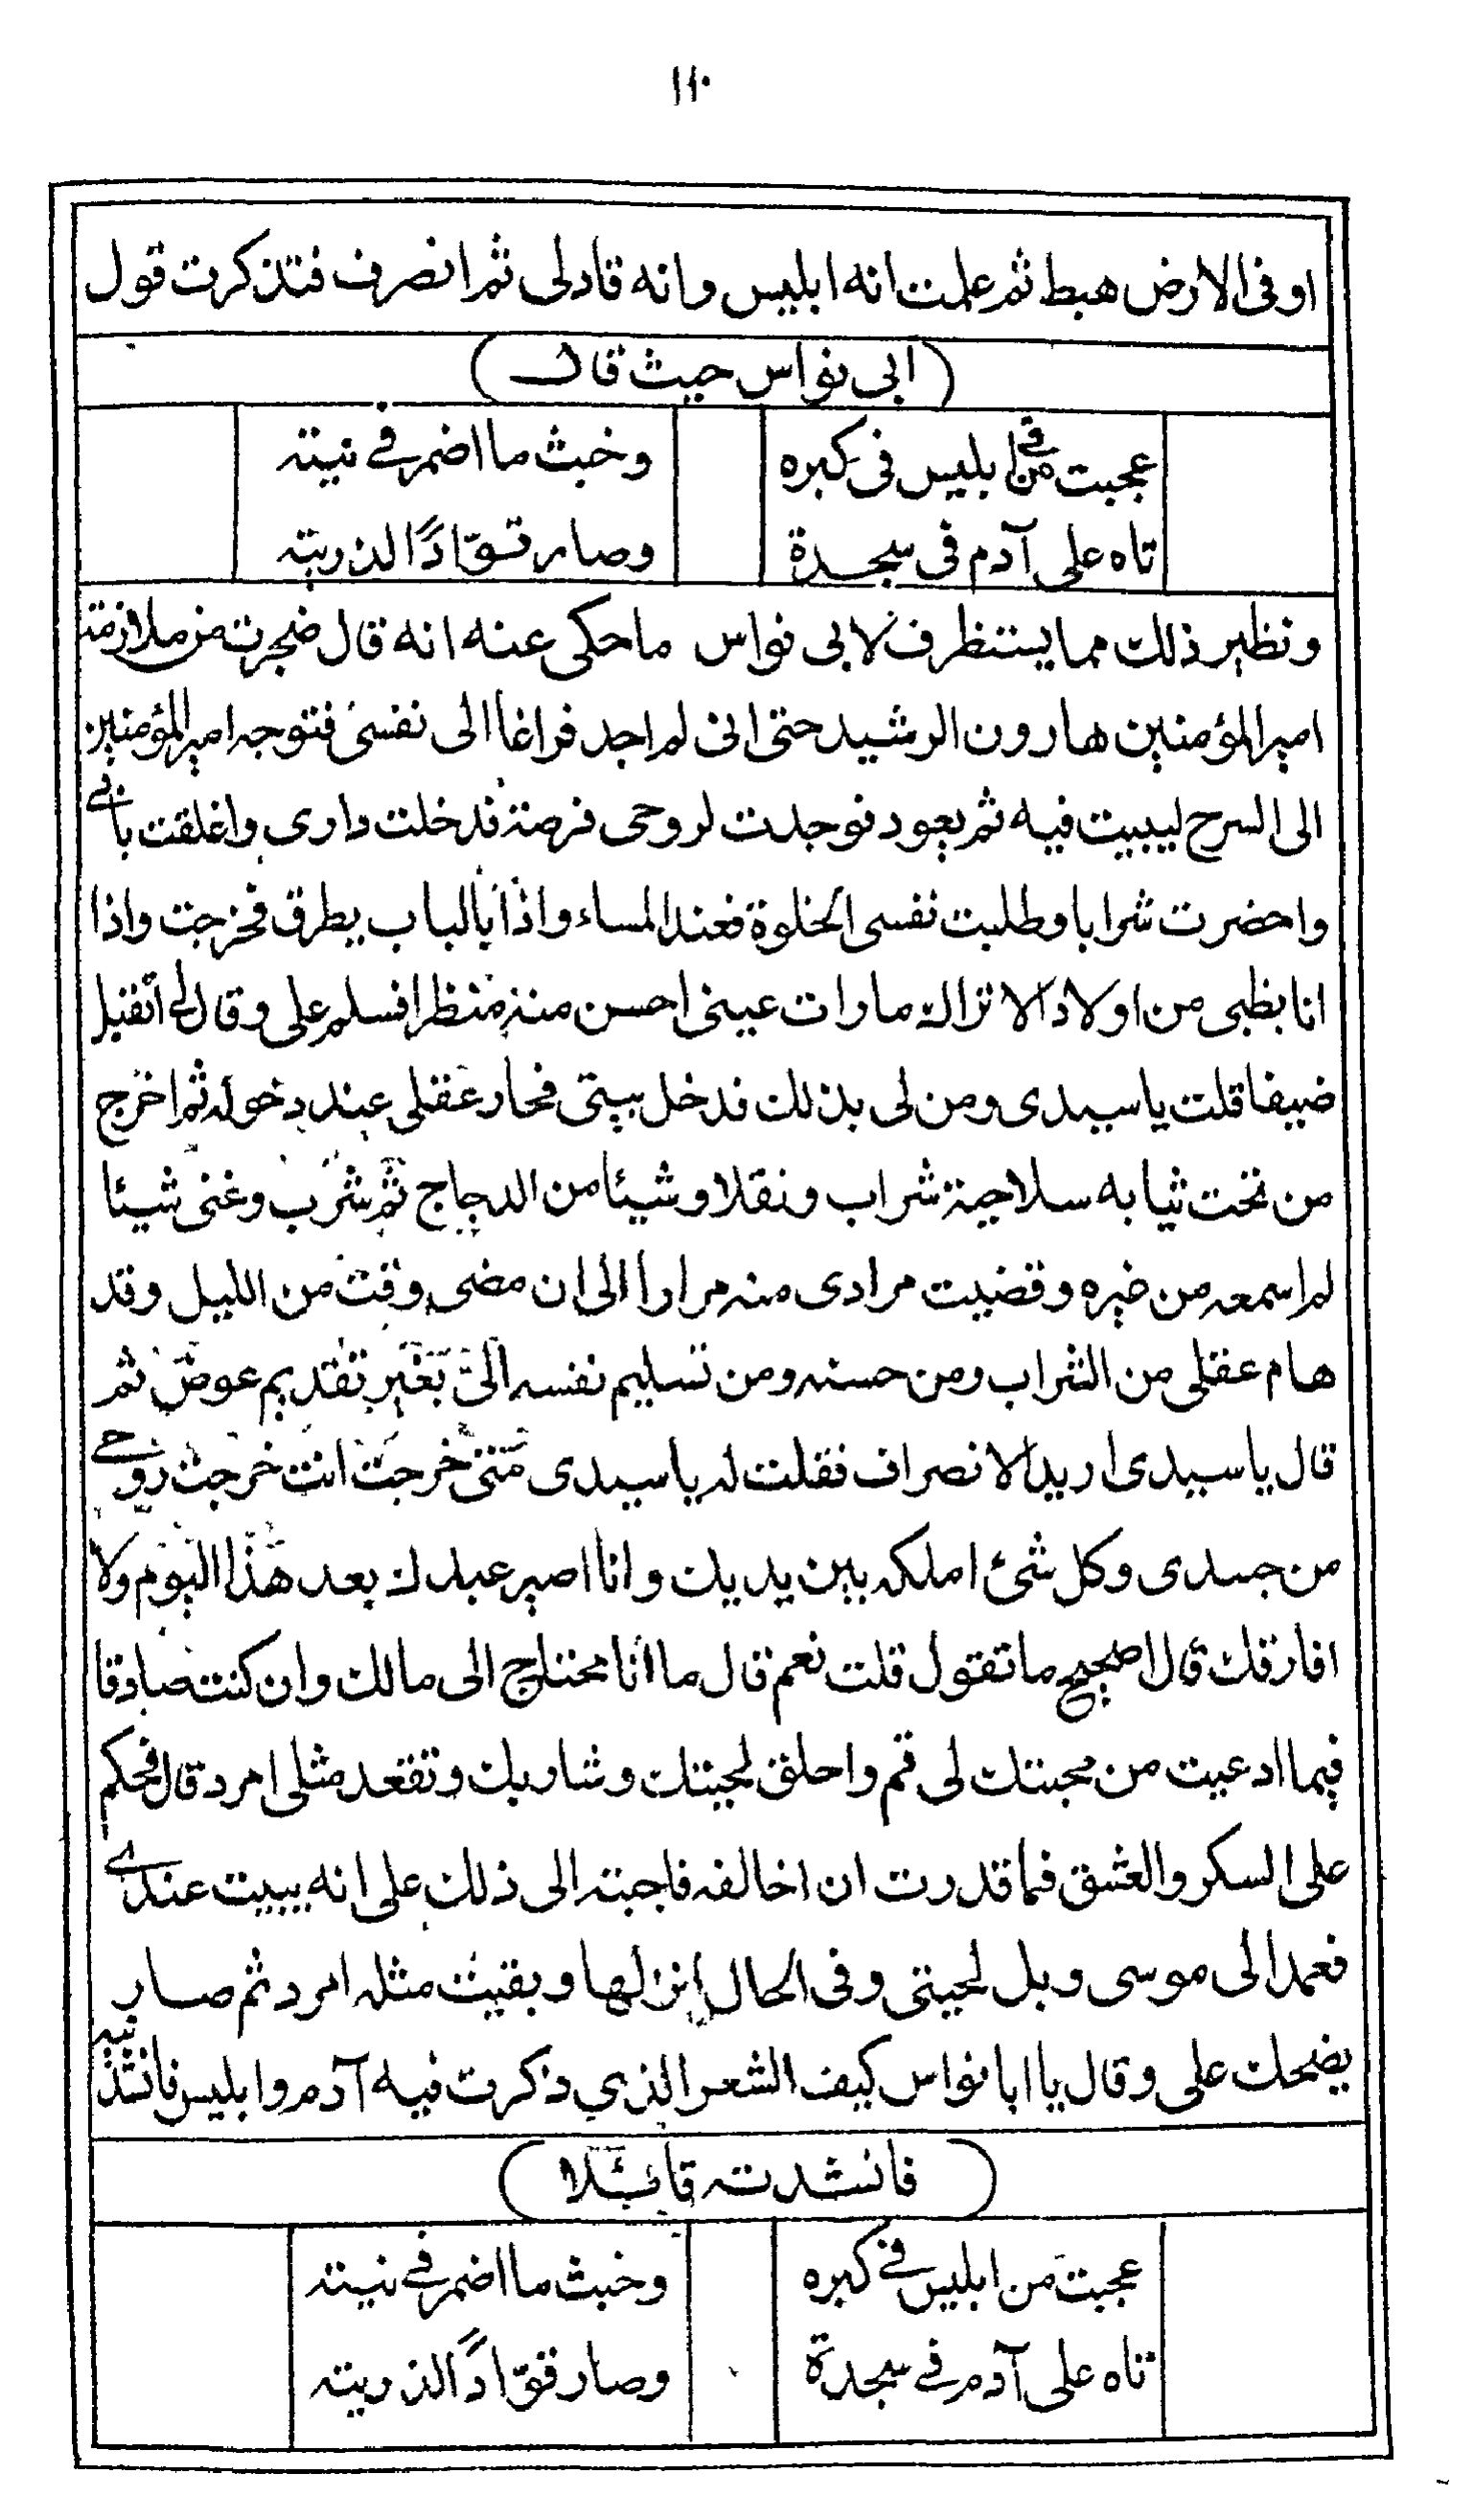 ١١٠
او فى الارض هبط ثم علمت انه ابليس وانه قادلى ثم انصرف فتذكرت قول
(ابى نواس حيث قال)
عجبت من ابليس فى كبره وخبث ما اضمر فى نيته
تاه على آدم فى سجدة وصار قوّادًا لذريته
ونظير ذلك مما يستظرف لابى نواس ما حكى عنه انه قال ضجرت من ملازمة
امير المؤمنين هارون الرشيد حتى انى لم اجد فراغا الى نفسى فتوجه امير المؤمنين
الى السرح ليبيت فيه ثم يعود فوجدت لروحى فرصة فدخلت دارى واغلقت بابى
واحضرت شرابا وطلبت نفسى الخلوة فعند المساء واذا بالباب يطرق فخرجت واذا
انا بظبى من اولاد الاتراك ما رات عينى احسن منه منظرا فسلم على وقال لى اتقبل
ضيفا قلت يا سيدى ومن لى بذلك فدخل بيتى فحار عقلى عند دخوله ثم اخرج
من تحت ثيابه سلاحية شراب ونقلا وشيئا من الدجاج ثم شرب وغنى شيئا
لم اسمعه من غيره وقضيت مرادى منه مرارا الى ان مضى وقت من الليل وقد
هام عقلى من الشراب ومن حسنه ومن تسليم نفسه الىّ بغير تقديم عوض ثم
قال يا سيدى اريد الانصراف فقلت له يا سيدى متى خرجت انت خرجت روحى
من جسدى وكل شئ املكه بين يديك وانا اصير عبدك بعد هذا اليوم ولا
افارقك قال اصحيح ما تقول قلت نعم قال ما انا محتاج الى مالك وان كنت صادقا
فيما ادعيت من محبتك لى قم واحلق لحيتك وشاربك وتقعد مثلى امرد قال فحكم
على السكر والعشق فما قدرت ان اخالفه فاجبته الى ذلك على انه يبيت عندى
فعمد الى موسى وبل لحيتى وفى الحال انزلها وبقيت مثله امرد ثم صار
يضحك على وقال يا ابا نواس كيف الشعر الذي ذكرت فيه آدم وابليس فانشدنيه
(فانشدته قائلا)
عجبت من ابليس فى كبره وخبث ما اضمر فى نيته
تاه على آدم فى سجدة وصار قوّادًا لذريته